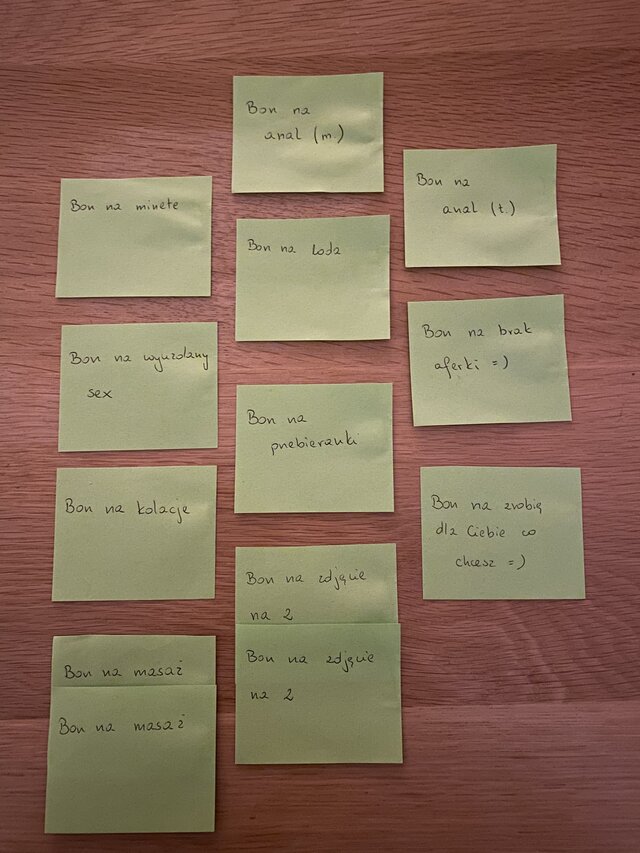 Bon na
anal (m.)
Bon na minete
Bon na loda
Bon na
anal (t.)
Bon na wyuzdany
sex
Bon na
przebieranki
Bon na brak
aferki =)
Bon na kolacje
Bon na zdjęcie
na 2
Bon na zdjęcie
na 2
Bon na zrobię
dla Ciebie co
chcesz =)
Bon na masaż
Bon na masaż